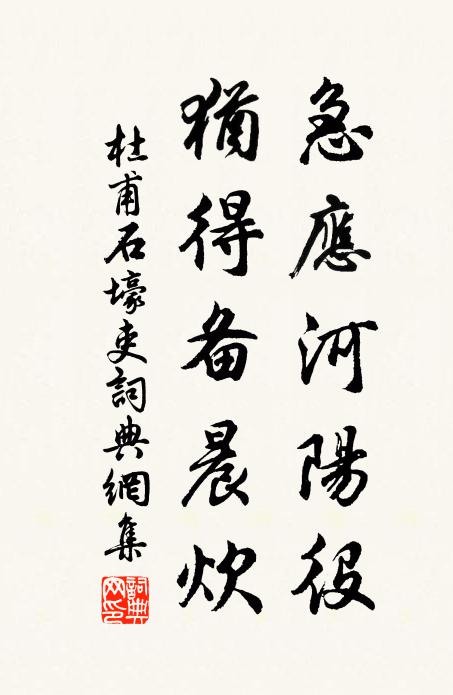 急應河陽役
猶得备晨炊
杜甫石壕吏詞典網集
詞典网印